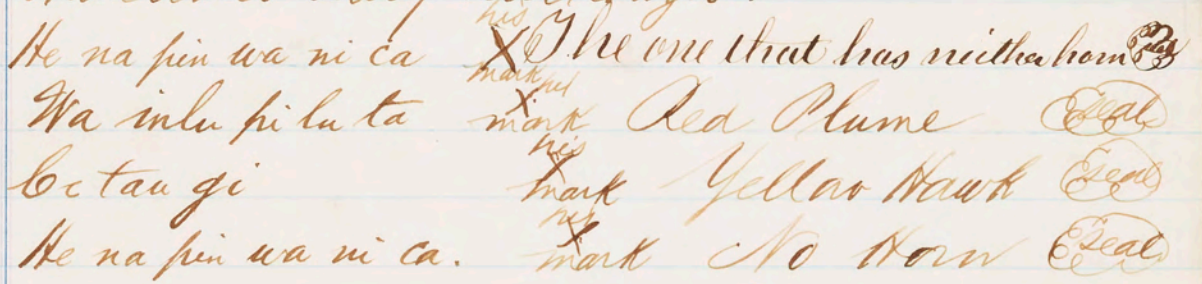 He na pin wa ni ca his X mark The one that has neither horn Seal
Wa inlu pi lu ta his X mark Red Plume Seal
Ce tau gi his X mark Yellow Hawk Seal
He na pin wa ni ca. his X mark No Horn Seal